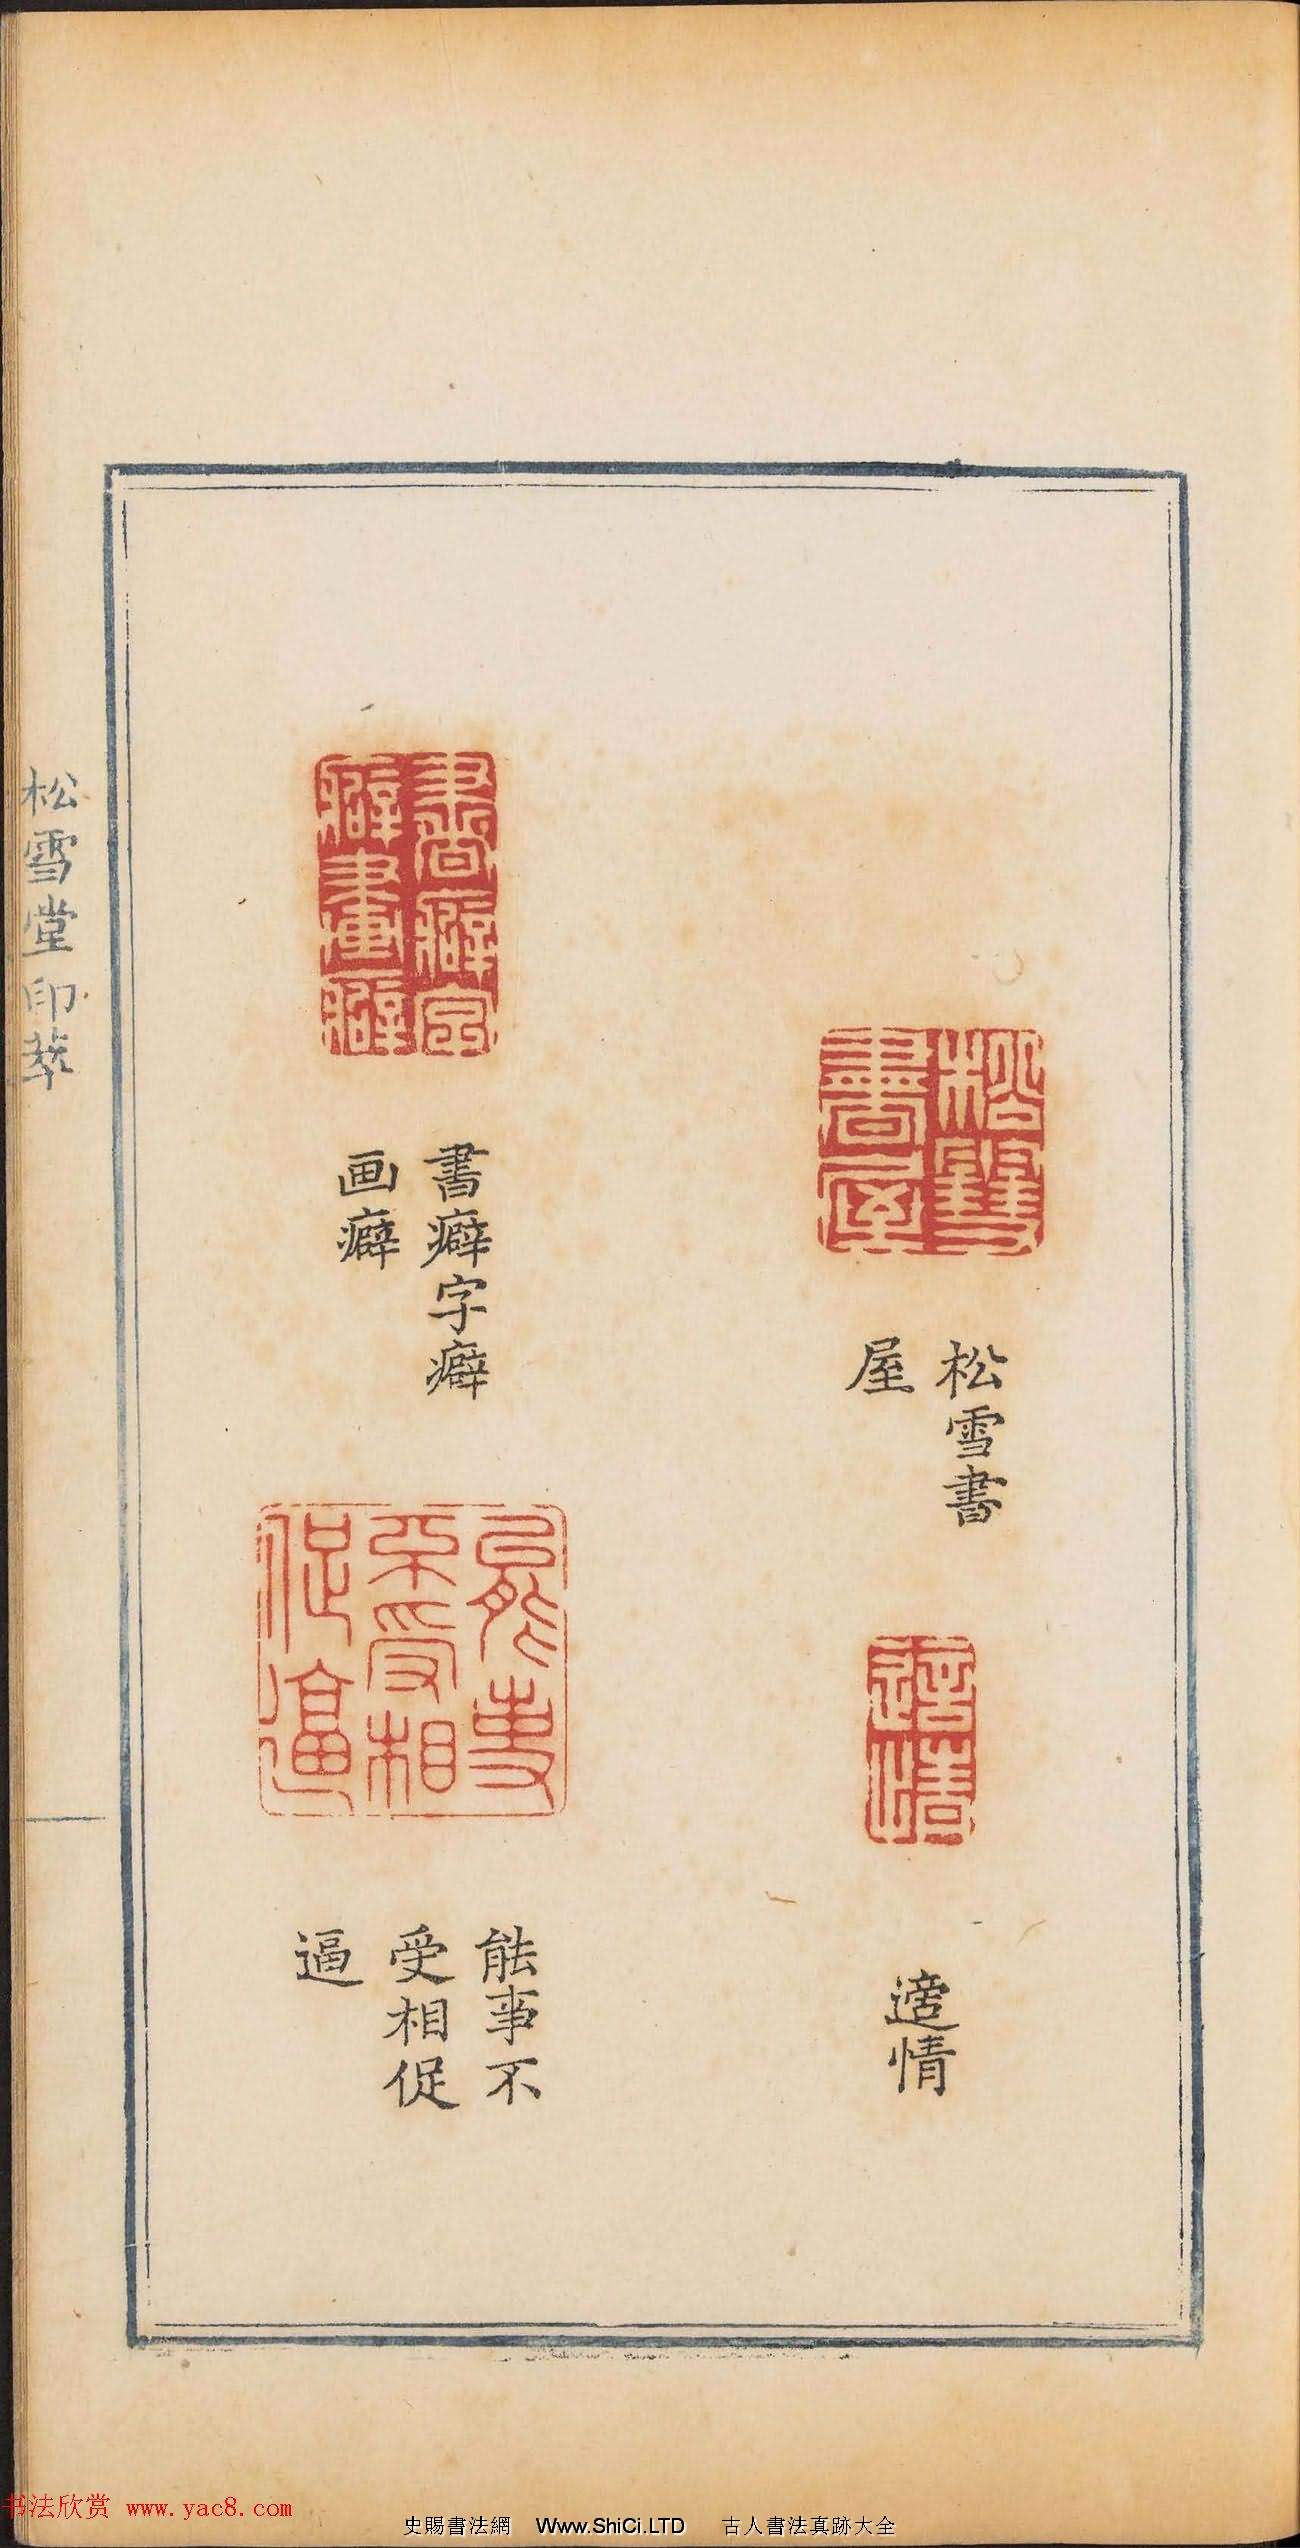 松雪書
屋
適情
書癖字癖
画癖
能事不
受相促
逼
松雪堂印萃
书法欣赏 www.yac8.com
史賜書法網 Www.ShiCi.LTD 古人書法真跡大全